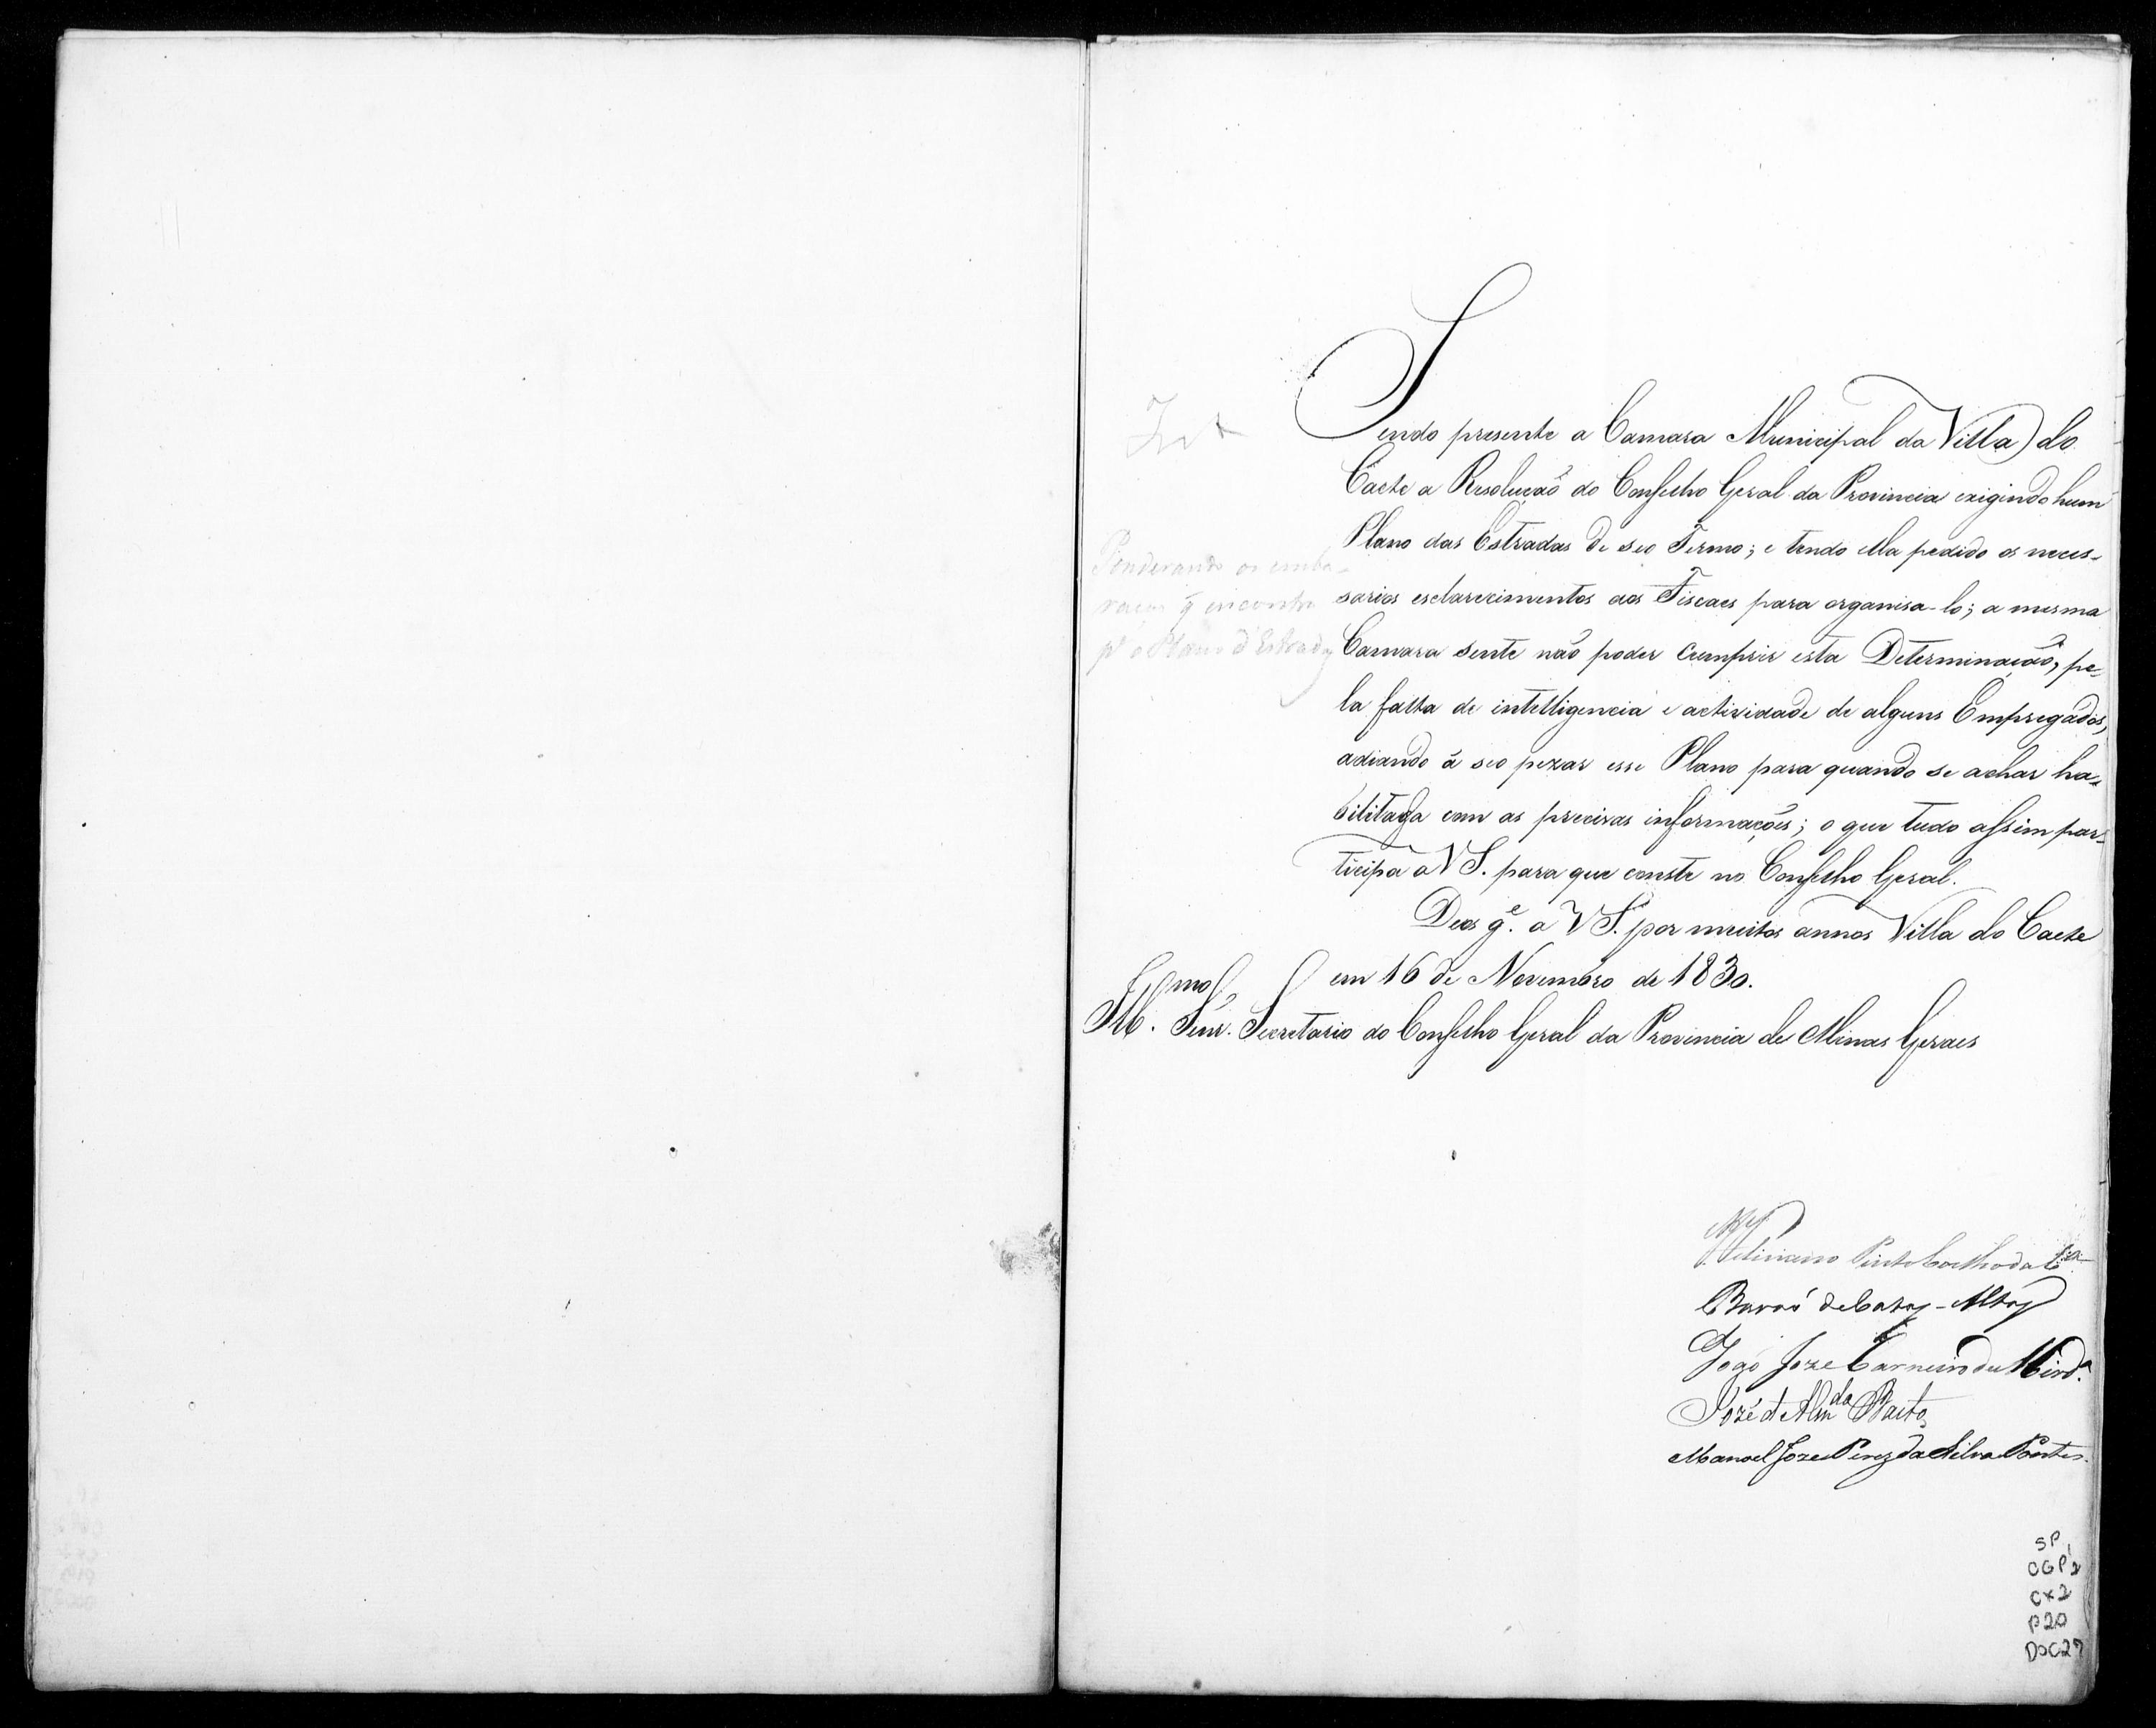 Sendo presente a Camara Municipal da Villa do
Caete a Resolução do Conselho Geral da Provincia exigindo hum
Plano das Estradas de seo Termo; e tendo ella pedido os neces-
sarios esclarecimentos aos Fiscaes para organisa-lo; a mesma
Camara sente não poder cumprir esta Determinação, pe-
la falta de intelligencia e actividade de alguns Empregados,
adiando á seo pezar esse Plano para quando se achar ha-
bilitada com as precizas informações; o que tudo assim par-
ticipa a VS. para que conste no Conselho Geral.
Deos g.e a VS. por muitos annos Villa do Caete
em 16 de Novembro de 1830.
Ill.mo Senr. Secretario do Conselho Geral da Provincia de Minas Geraes
Ponderando os emba-
raços q̃ encontra
p.a o Plano d'Estradas
Feliciano Pinto Coelho da C.a
Barão de Catas-Altas
João Joze Carneiro de Mird.a
Jozé d'Alm.da
Manoel Joze Pires da Silva Pontes.
SP
CGP1
2
CX2
P20
DOC27